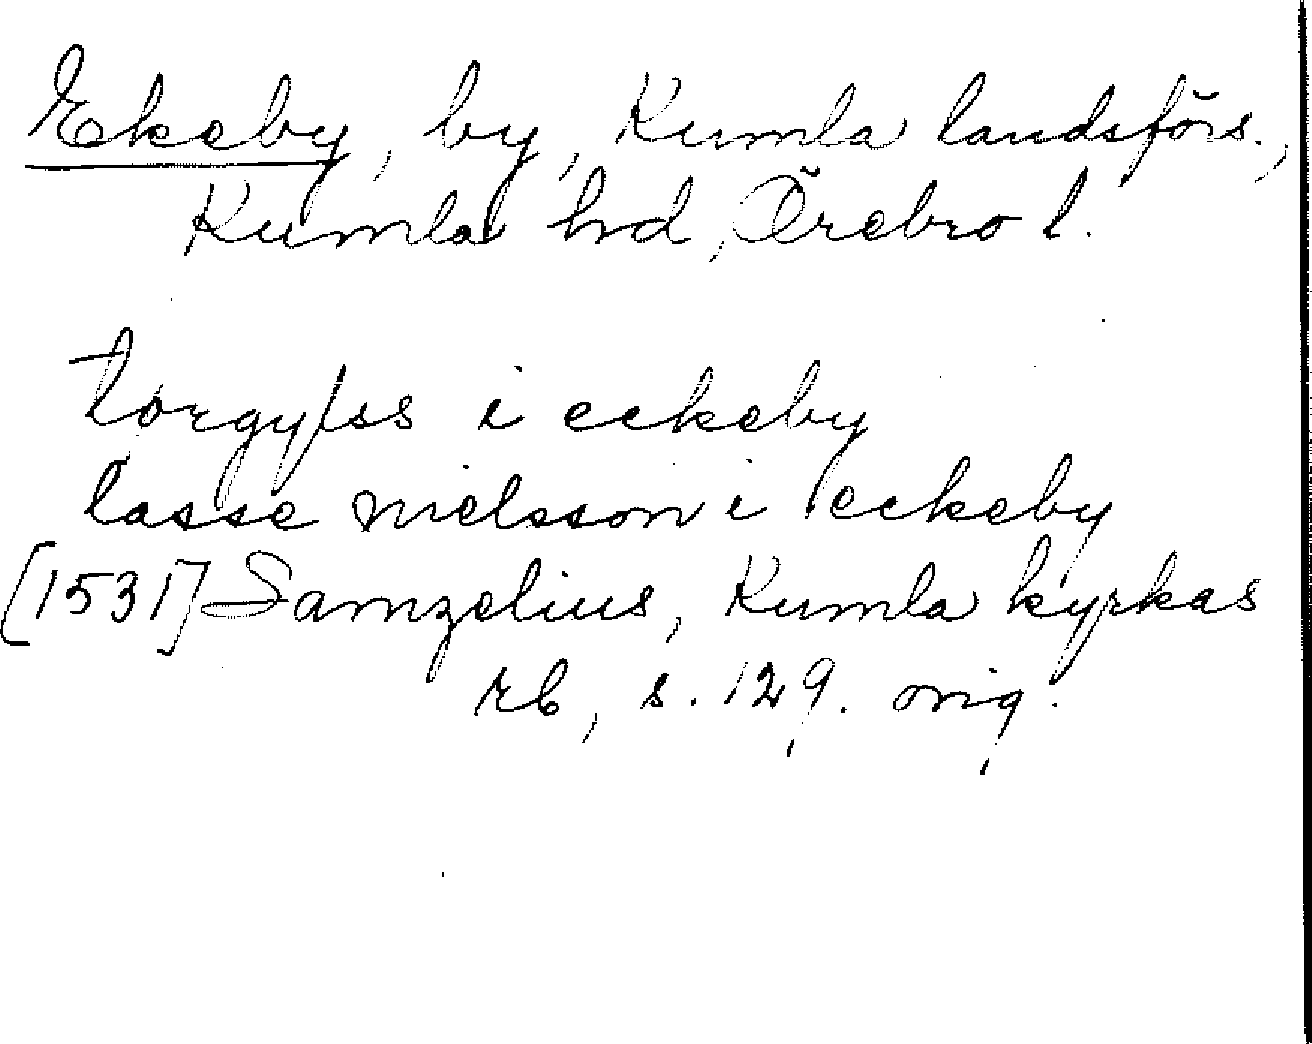 Ekeby, by, Kumla landsförs.,
Kumla hd, Örebro l.
torgylss i eekeby
lasse nielsson i eekeby
[1531] Samzelius, Kumla kyrkas
rb, s. 129. orig.